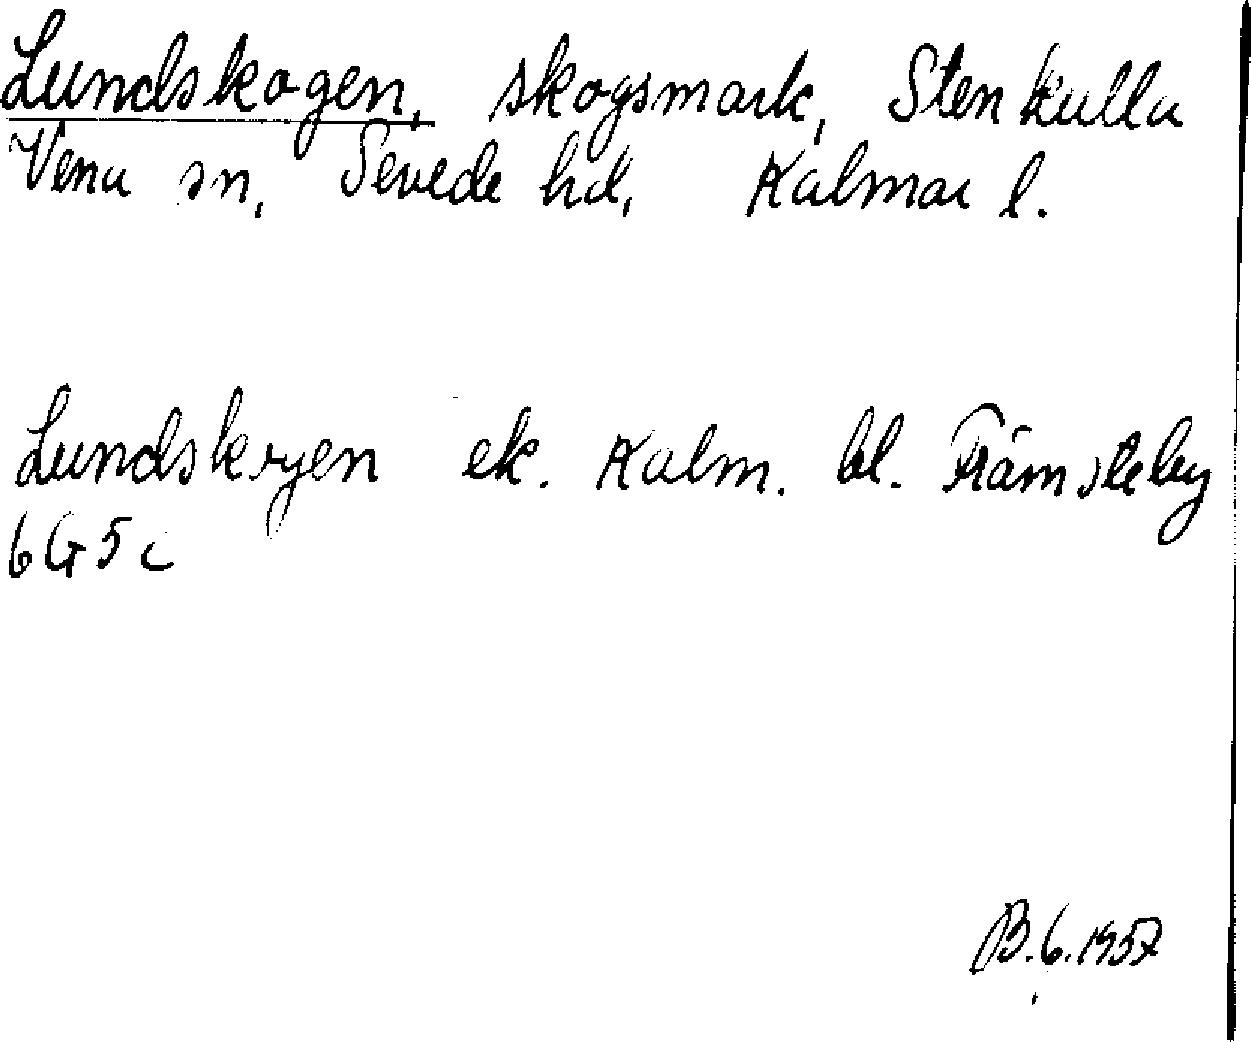 Lundskogen, skogsmark, Stenkulla
Vena sn, Sevede hd, Kalmar l.
Lundskogen ek. Kalm. bl. Främsteby
6G5c
B.6.1957